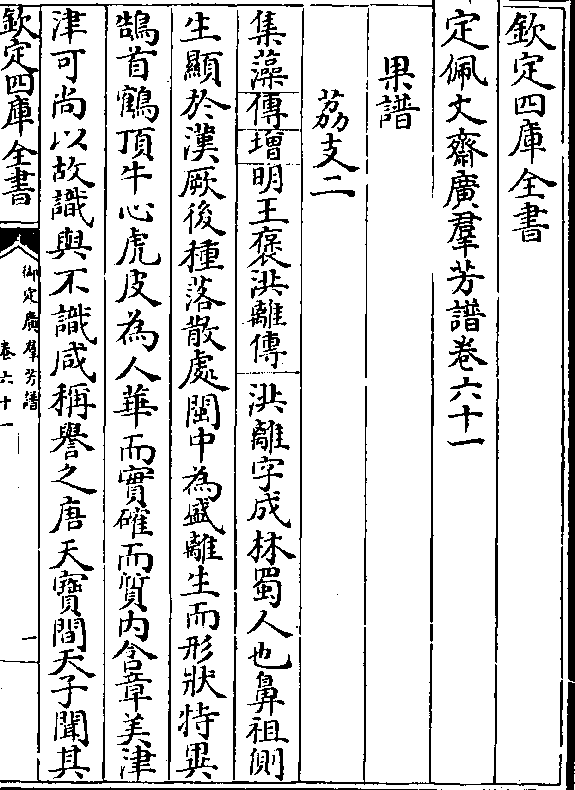 欽定四庫全書
定佩文齋廣羣芳譜卷六十一
果譜
荔支二
集藻傳增明王褒洪離傳洪離字成林蜀人也鼻祖側
生顯於漢厥後種落散處閩中為盛離生而形狀特異
鵠首鶴頂牛心虎皮為人華而實確而質内含章美津
津可尚以故識與不識咸稱譽之唐天寶間天子聞其
欽定四庫全書
御定廣羣芳譜
卷六十一
一